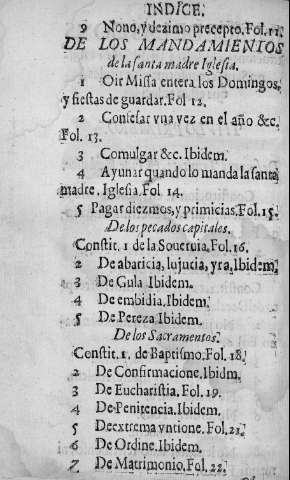 INDICE.
9 Nono, y dezimo precepto. Fol. 11.
DE LOS MANDAMIENTOS
de la santa madre Iglesia.
1 Oir Missa entera los Domingos,
y fiestas de guardar. Fol 12.
2 Confesar vna vez en el año &c.
Fol. 13.
3 Comulgar &c. Ibidem.
4 Ayunar quando lo manda la santa
madre. Iglesia. Fol. 14.
5 Pagar diezmos, y primicias. Fol. 15.
De los pecados capitales.
Constit. 1 de la Soueruia, Fol. 16.
2 De abaricia, lujucia, yra, Ibidem.
3 De Gula Ibidem.
4 De embidia, Ibidem.
5 De Pereza Ibidem.
De los Sacramentos.
Constit. 1. de Baptismo. Fol. 18.
2 De Confirmacione. Ibidm.
3 De Eucharistia. Fol. 19.
4 De Penitencia. Ibidem.
5 De extrema vntione. Fol. 21.
6 De Ordine. Ibidem.
7 De Matrimonio. Fol. 22.